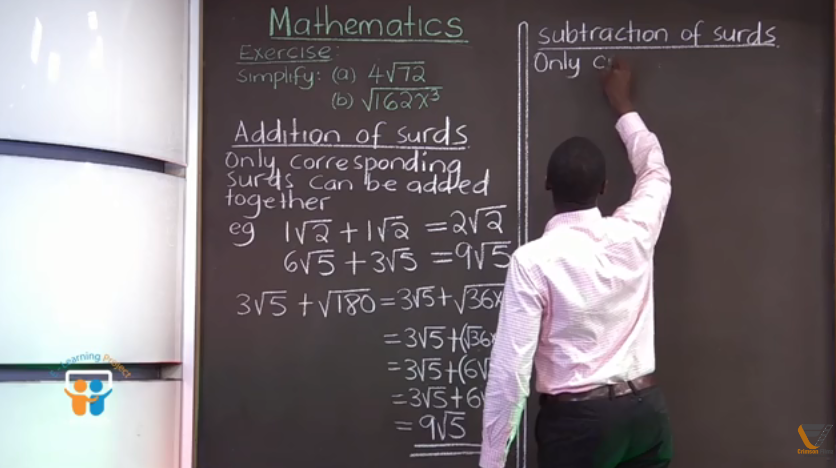 Mathematics
Exercise:
Simplify: (a) 4√72
(b) √162x³
Addition of surds
Only corresponding
surds can be added
together
eg 1√2 + 1√2 = 2√2
6√5 + 3√5 = 9√5
3√5 + √180 = 3√5 + √36x
= 3√5 + (√36x
= 3√5 + (6√
= 3√5 + 6√
= 9√5
subtraction of surds
Only c
Learning Project